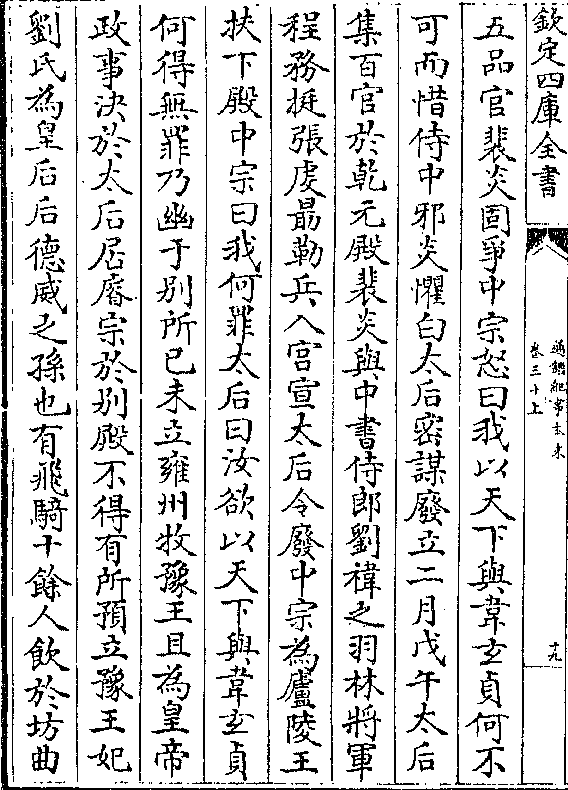 欽定四庫全書
通鑑紀事本末
卷三十上
十九
五品官裴炎固爭中宗怒曰我以天下與韋玄貞何不
可而惜侍中邪炎懼白太后密謀廢立二月戊午太后
集百官於乾元殿裴炎與中書侍郎劉禕之羽林將軍
程務挺張虔勗勒兵入宫宣太后令廢中宗為廬陵王
扶下殿中宗曰我何罪太后曰汝欲以天下與韋玄貞
何得無罪乃幽于别所已未立雍州牧豫王旦為皇帝
政事决於太后居睿宗於别殿不得有所預立豫王妃
劉氏為皇后后德威之孫也有飛騎十餘人飲於坊曲